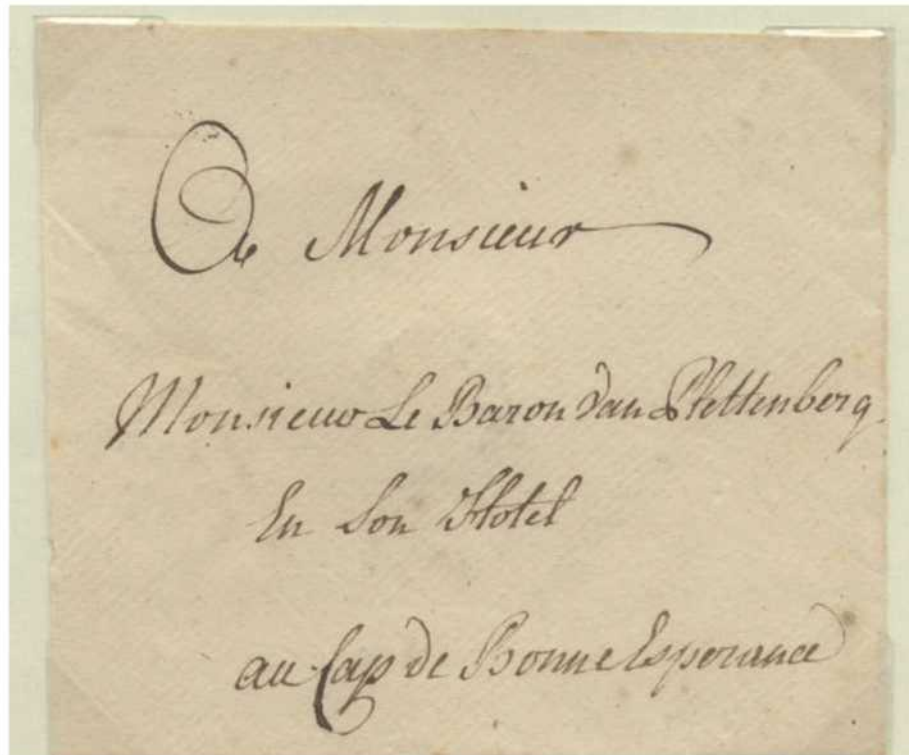 A Monsieur
Monsieur Le Baron van Plettenberg
En Son Hotel
au Cap de Bonne Esperance